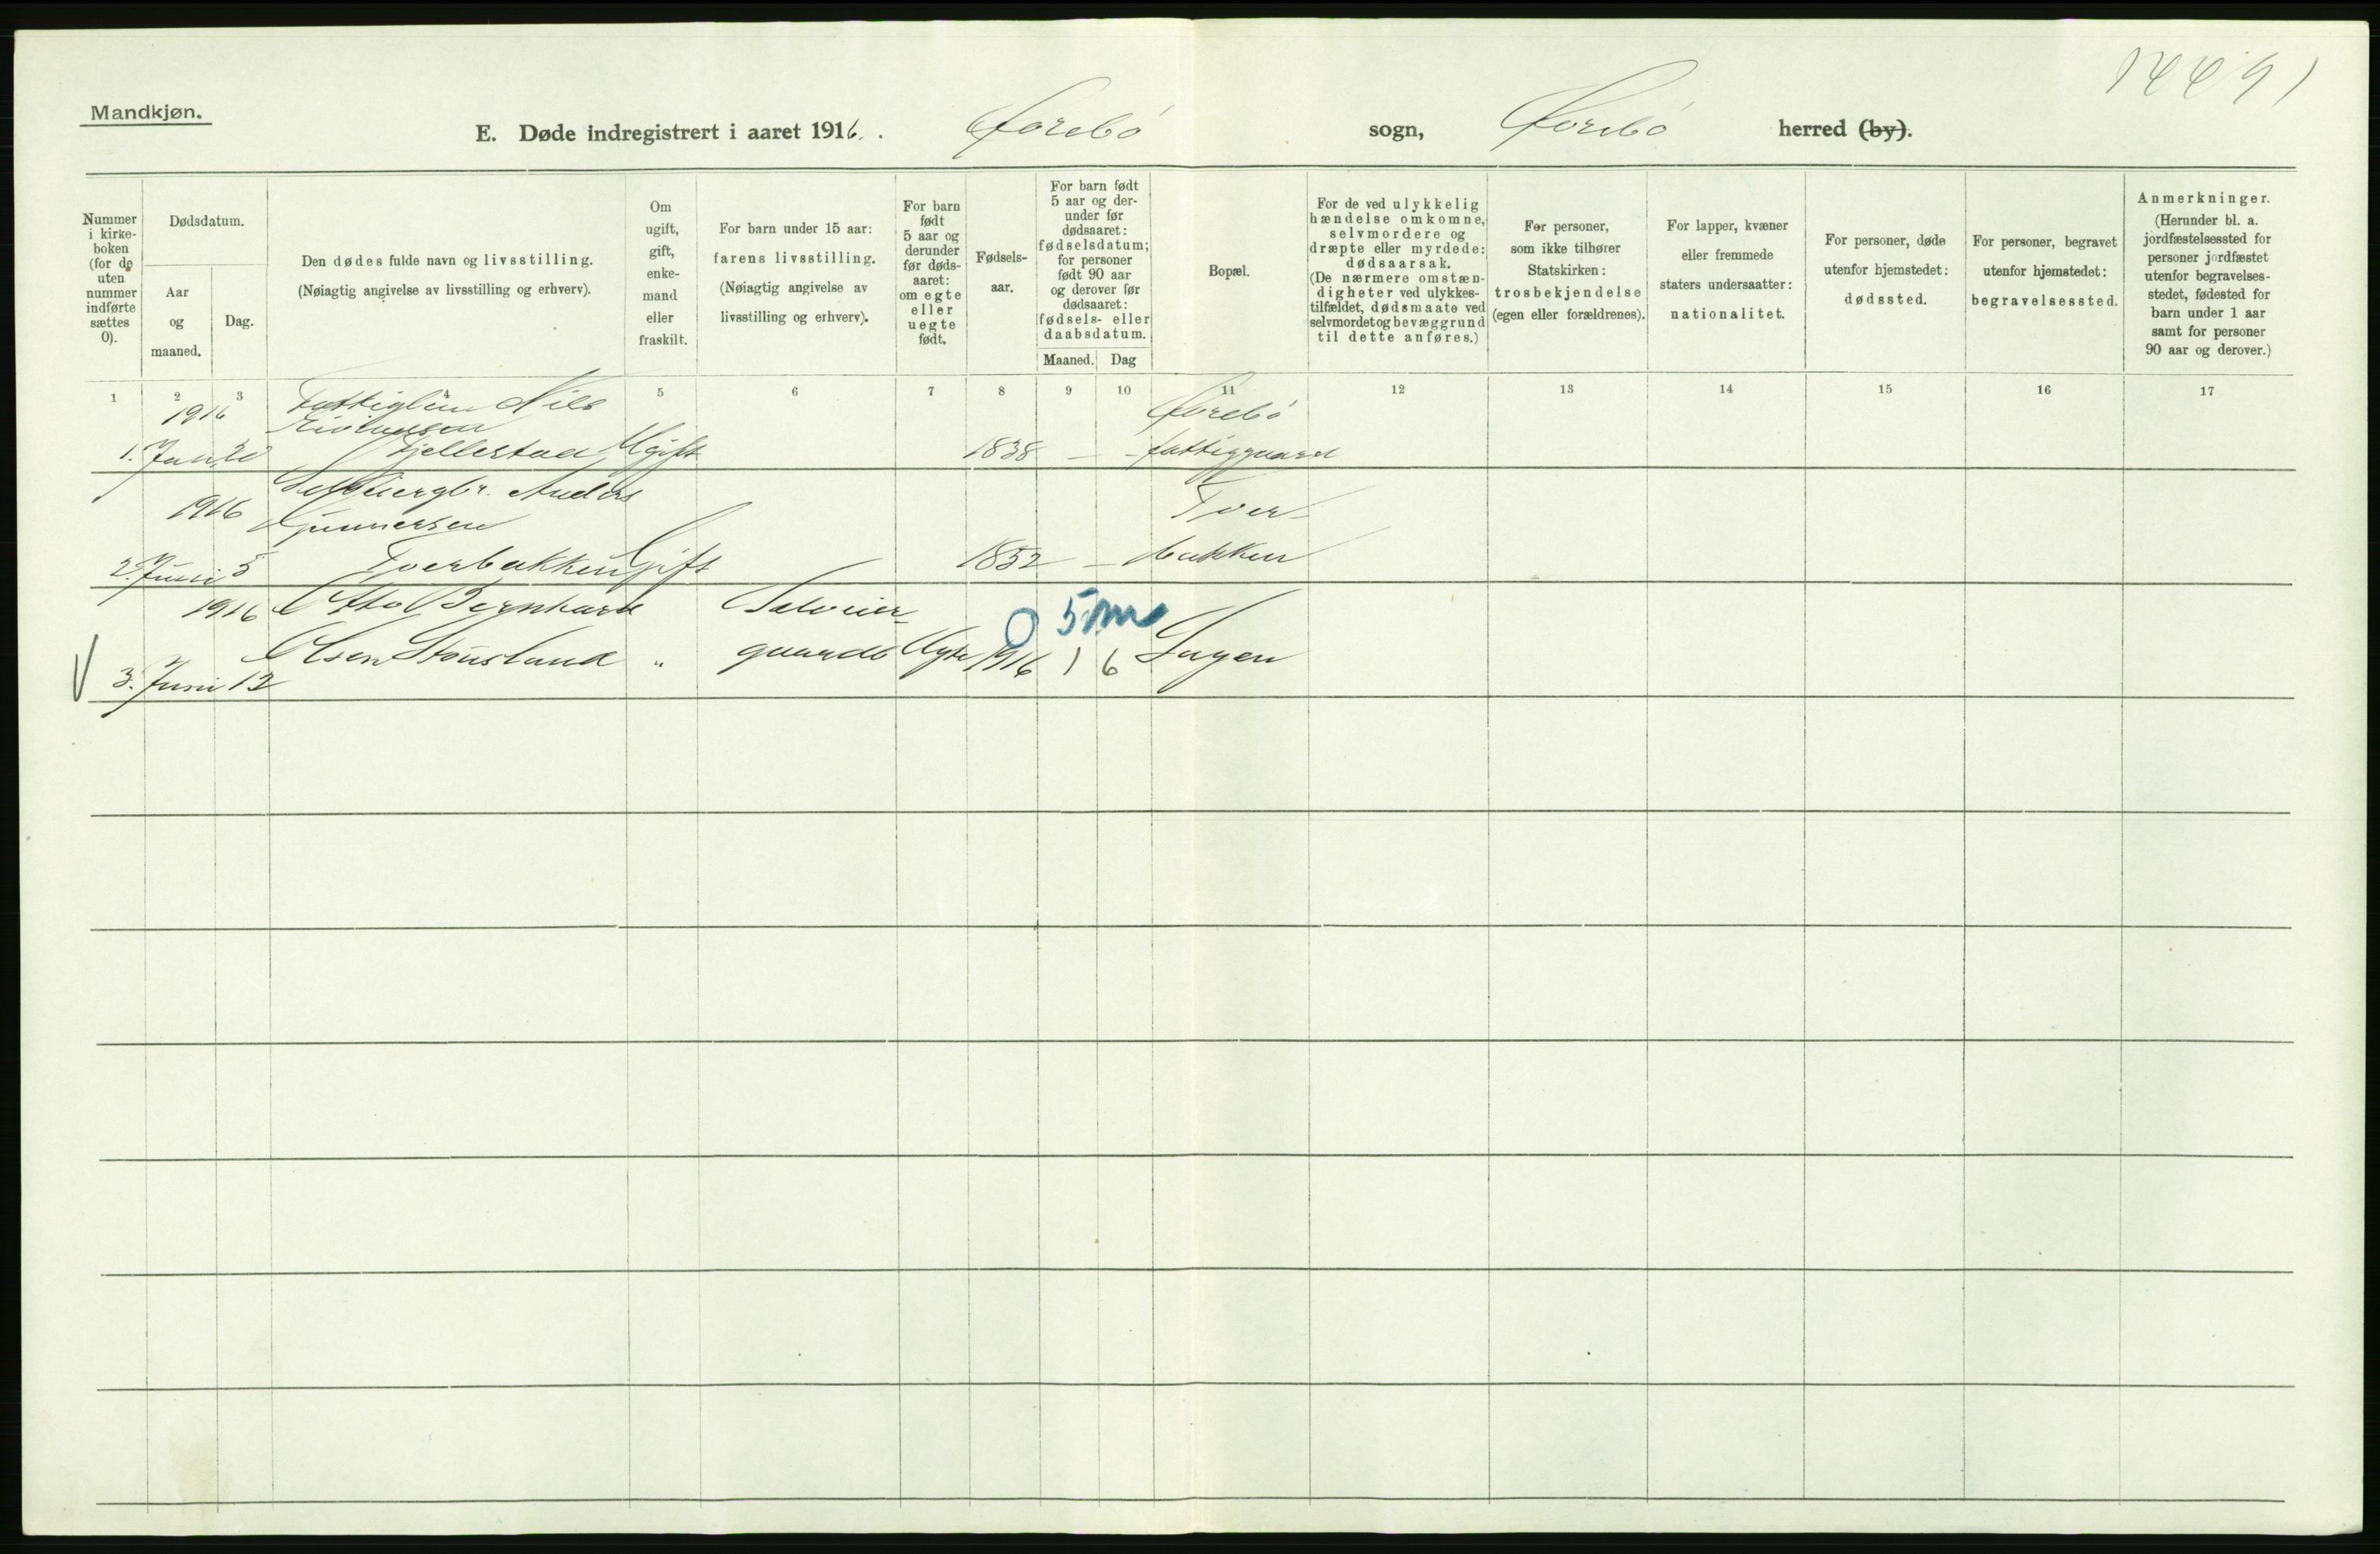 Mandkjøn.
E. Døde indregistrert i aaret 1916. Forebö sogn, Forebö herred (by).
Nummer i kirke- boken (for de uten nummer indførte sættes 0).
Dødsdatum.
Aar og maaned.
Dag.
Den dødes fulde navn og livsstilling.
(Nøiagtig angivelse av livsstilling og erhverv).
Om ugift, gift, enke- mand eller fraskilt.
For barn under 15 aar: farens livsstilling.
(Nøiagtig angivelse av livsstilling og erhverv).
For barn født 5 aar og derunder før døds- aaret: om egte eller uegte født.
Fødsels- aar.
For barn født 5 aar og der- under før dødsaaret: fødselsdatum; for personer født 90 aar og derover før dødsaaret: fødsels- eller daabsdatum.
Maaned. Dag
Bopæl.
For de ved ulykkelig hændelse omkomne, selvmordere og dræpte eller myrdede: dødsaarsak.
(De nærmere omstæn- digheter ved ulykkes- tilfældet, dødsmaate ved selvmordet og bevæggrund til dette anføres.)
For personer, som ikke tilhører Statskirken: trosbekjendelse (egen eller forældrenes).
For lapper, kvæner eller fremmede staters undersaatter: nationalitet.
For personer, døde utenfor hjemstedet: dødssted.
For personer, begravet utenfor hjemstedet: begravelsessted.
Anmerkninger.
(Herunder bl. a. jordfæstelsessted for personer jordfæstet utenfor begravelses- stedet, fødested for barn under 1 aar samt for personer 90 aar og derover.)
1 2 3 5 6 7 8 9 10 11 12 13 14 15 16 17
1916 Fattiglem Nils Forebö
1. Jan. 20 Kjellestad Ugift 1838 — - fattiggaard
Anders
1916 Gunnersen Tver-
2. Juni 5 Tverbakken Gift 1852 — bakken
1916 Bernhard 5 m
Olsen Stousland " gaardb 1916 1 6
3. Juni 12